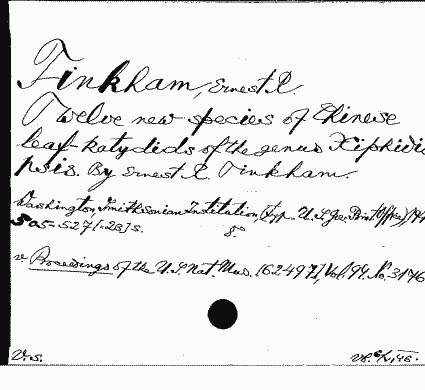 Tinkham, Ernest R.
Twelve new species of Chinese
leaf-katydids of the genus Xiphidio
psis. By Ernest R. Tinkham.
Washington, Smithsonian Institution, (Typ. U.S. Gov. Print. Office)
505-527 [-28] s. 8°.
Proceedings of the U.S. Nat. Mus. [62497], Vol. 94. No. 3176